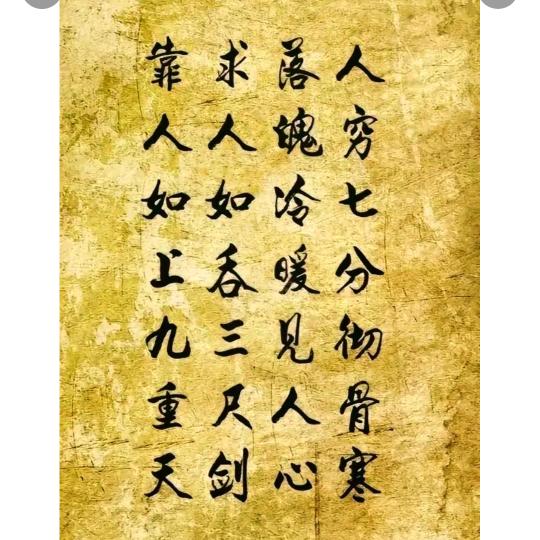 人穷七分彻骨寒
落魄冷暖见人心
求人如吞三尺剑
靠人如上九重天